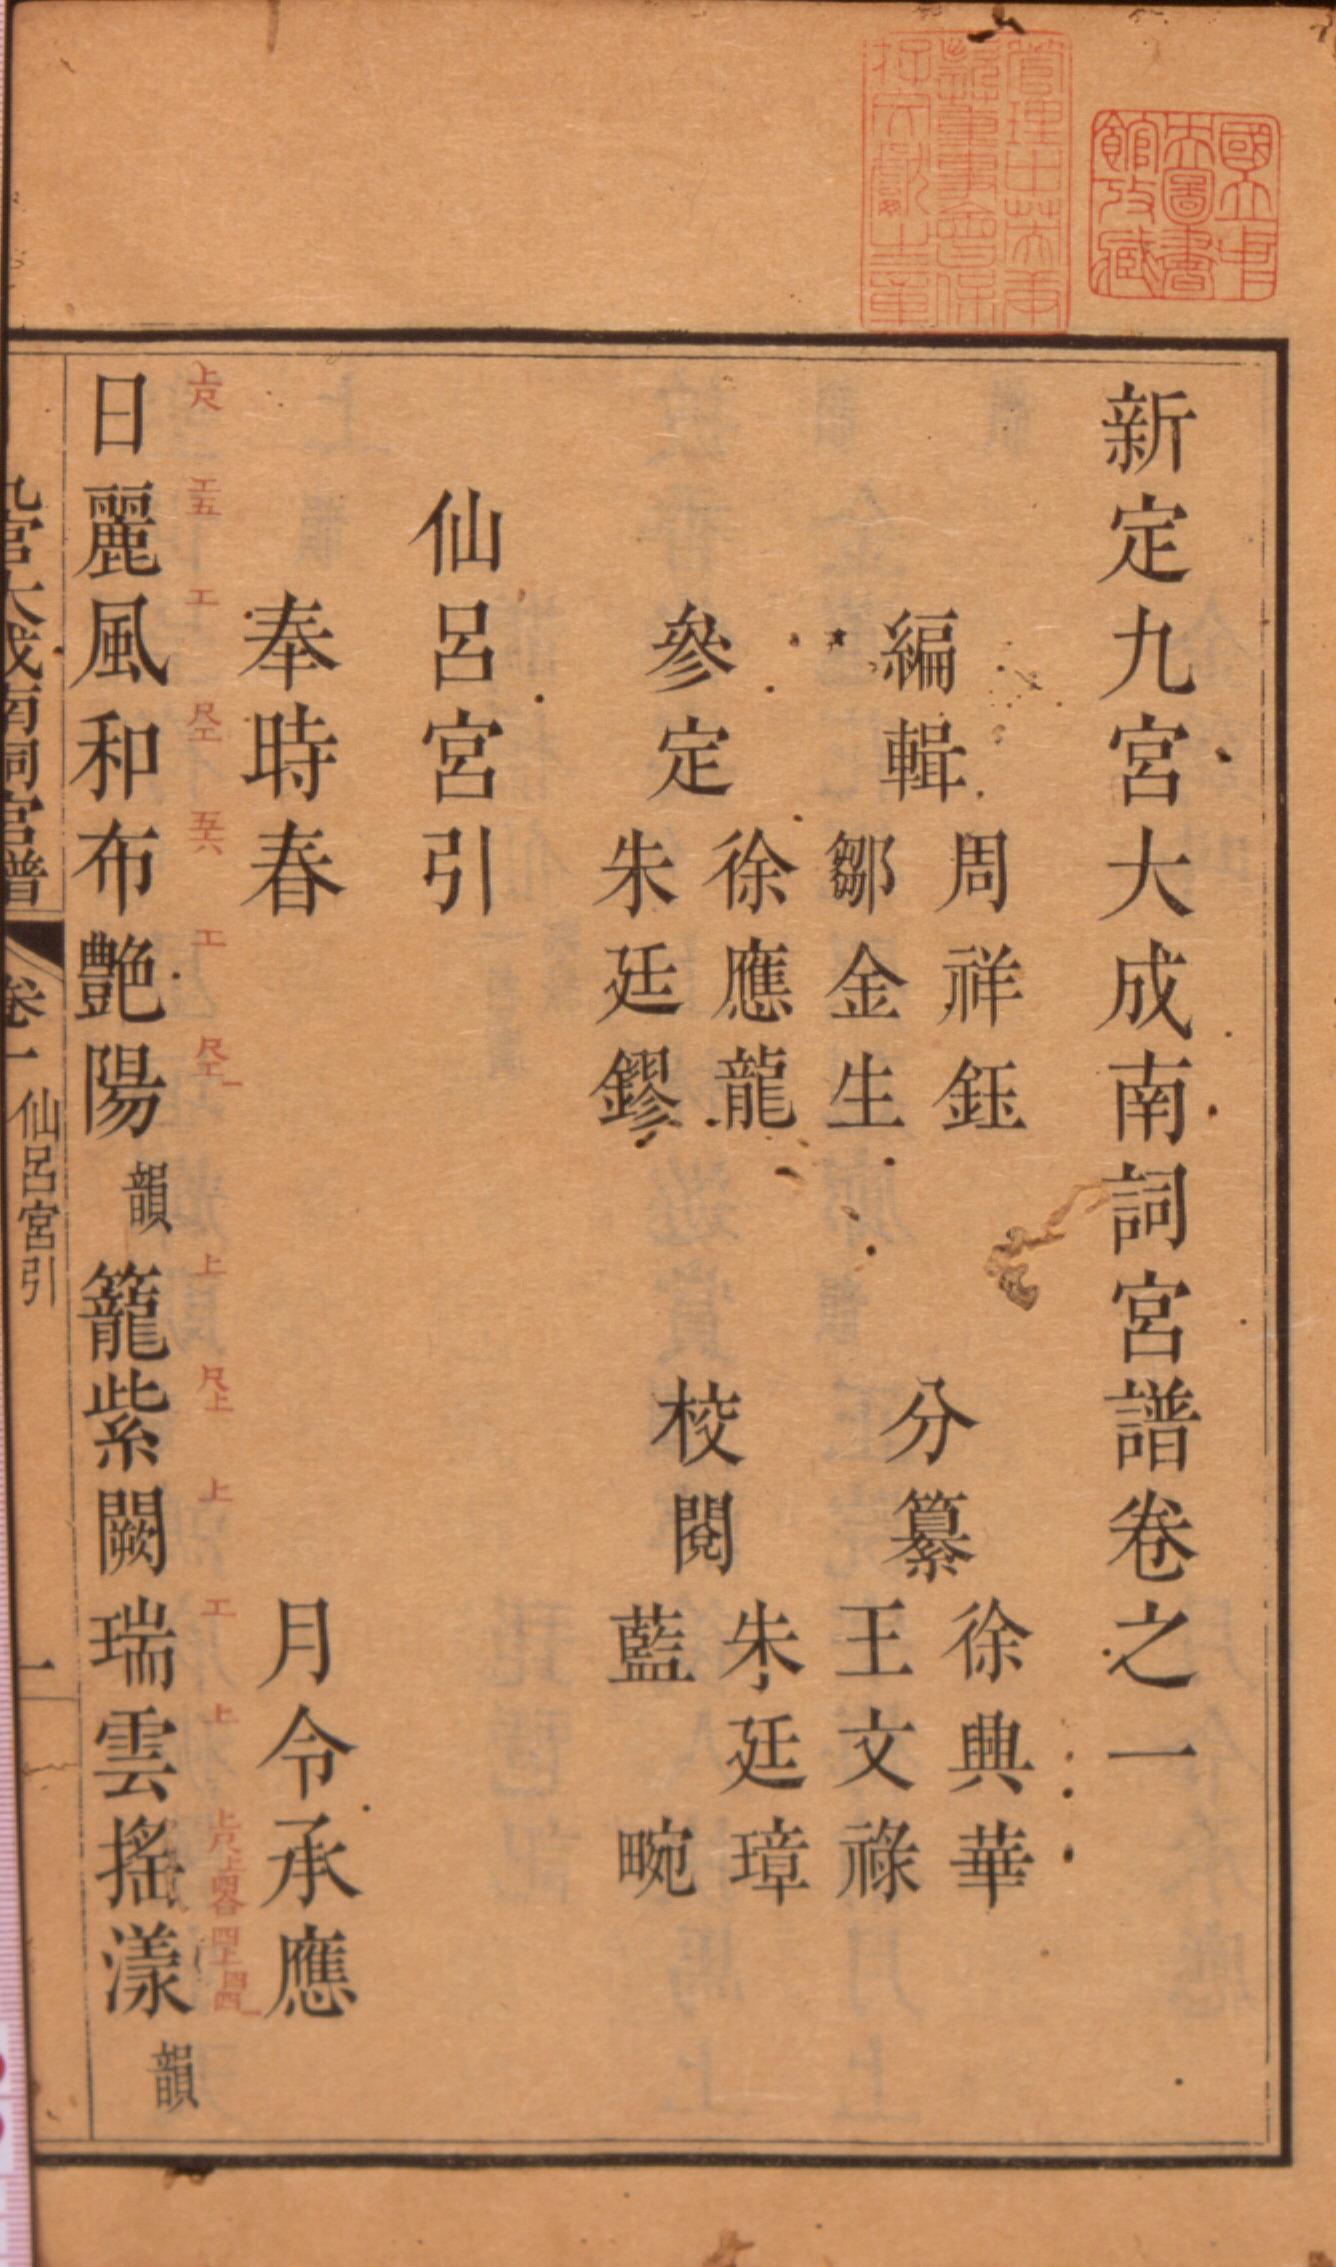 新定九宮大成南詞宮譜卷之一
編輯
周祥鈺
鄒金生
分纂
徐興華
王文祿
參定
徐應龍
朱廷鏐
校閱
朱廷璋
藍畹
仙呂宮引
奉時春 月令承應
日麗風和布艷陽韻籠紫闕瑞雲搖漾韻
上尺 工五 工 尺工 五六 工 尺工 上 尺上 上 工 上
九宮大成南詞宮譜 卷一 仙呂宮引 一
國立中央圖書館收藏
管理中英庚款董事會保存文獻之章